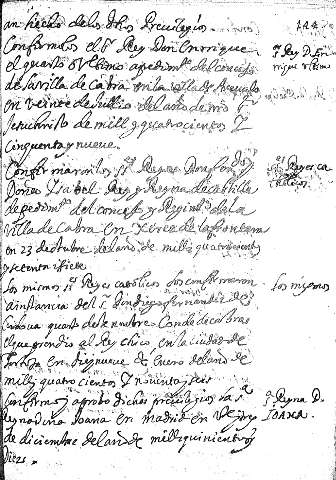 an hecho de los dhos Preuilegios
Confirmolos el Sr Rey Don Enrrique
el quarto Vltimo a pedimto del concejo
de la villa de Cabra en la villa de Areualo
en veinte de Jullio del año de nro Sr
Jesuchristo de mill y quatrocientos y
cinquenta y nueue.
Confirmaronlos sres Reyes Don ferndo y
Doña Ysabel Rey y Reyna de castilla
de pedimto del concejo y Regimto de la
Villa de Cabra en Xerez de la frontera
en 23 de otubre del año de mill y quatrocientos
y setenta i siete
los mismos sres Reyes catolicos los confirmaron
a instancia del Sr Dn diego fernandez de
Cordoua quarto deste nombre Conde de cabra
el que prendio al Rey chico en la ciudad de
Tortosa en diez nueue de Enero del año de
mill y quatrocientos y nouenta y seis
Confirmo y aprobo dichos preuilegios la sra
Reyna doña Joana en madrid en Veinte
de diciembre del año de mill y quinientos y
diez.
sr Rey D. En
rrique vltimo
Reyes ca
tolicos
los mismos
sra Reyna D.
IOANA.